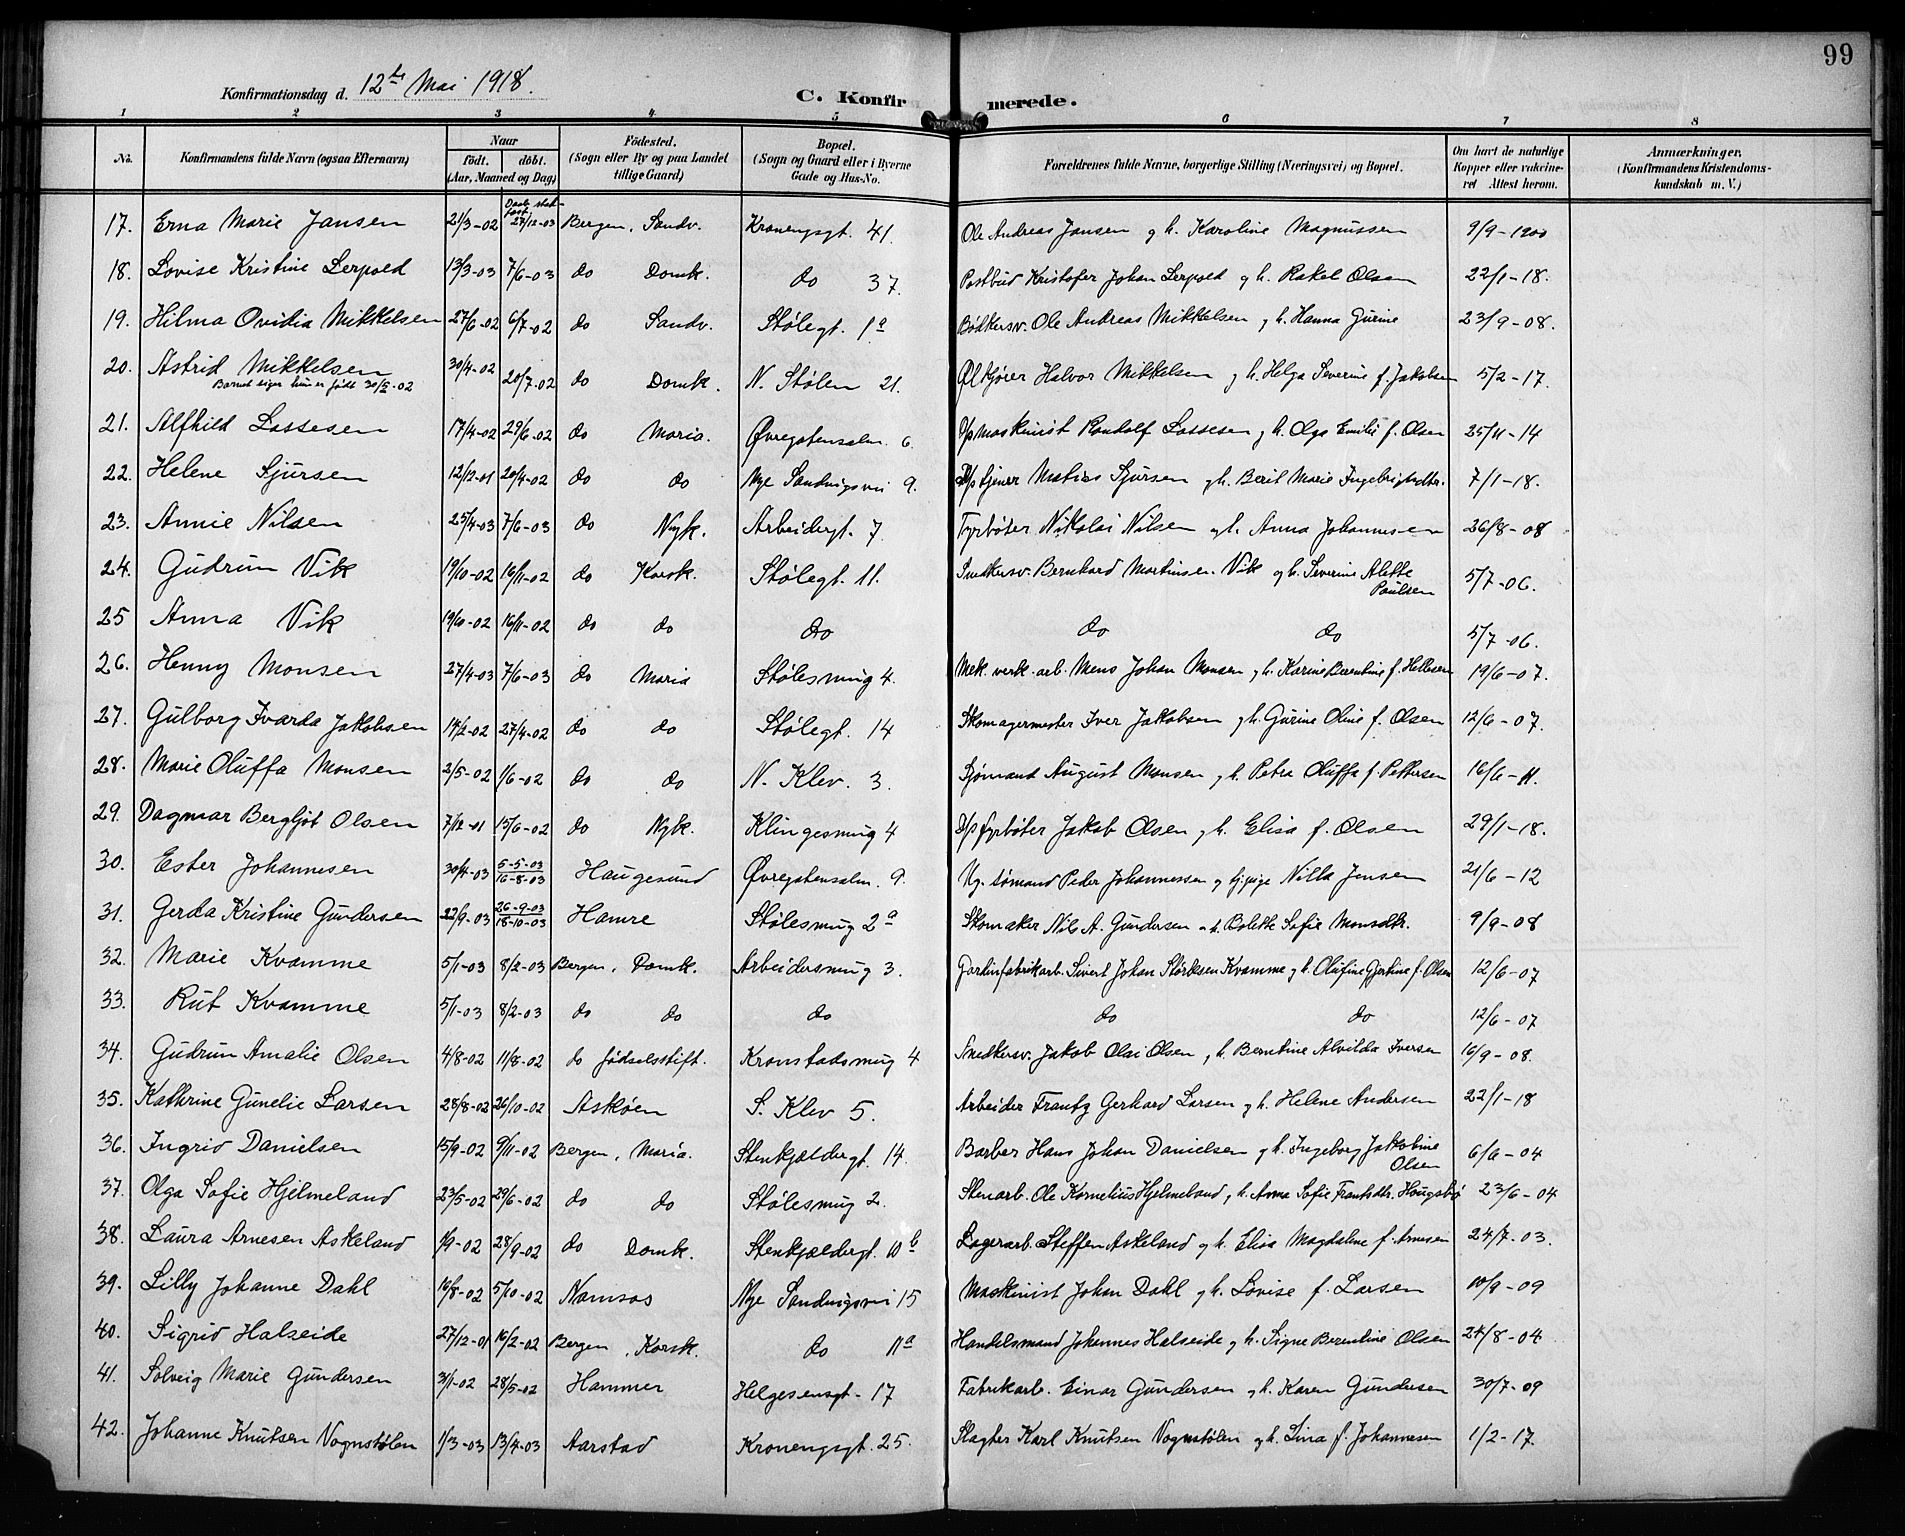 99
Konfirmationsdag d. 12te Mai 1918.
C. Konfirmerede.
1 2 3 4 5 6 7 8
No. Konfirmandens fulde Navn (ogsaa Efternavn) Naar født. døbt. (Aar, Maaned og Dag) Födested. (Sogn eller By og paa Landet tillige Gaard) Bopæl. (Sogn og Gaard eller i Byerne Gade og Hus-No. Forældrenes fulde Navne, borgerlige Stilling (Næringsvei) og Bopæl. Om havt de naturlige Kopper eller vakcineret Attest herom. Anmærkninger. (Konfirmandens Kristendomskundskab m. V.)
17. Erna Marie Jansen 21/3-02 Daab stadfæst 27/12-03 Bergen, Sandv. Kroneng​sgt. 41. Ole Andreas Jansen g h. Karoline Magnussen 9/9-1900
18. Lovise Kristine Lerpold 13/3-03 7/6-03 do Domk. do 37. Postbud Kristofer Johan Lerpold g h. Rakel Olsen 22/1-18.
19. Hilma Ovidia Mikkelsen 27/6-02 6/7-02 do Sandv. Stølegt. 1a Bødkersv. Ole Andreas Mikkelsen g h. Hanna Gurine 23/9-08.
20. Astrid Mikkelsen 30/4-02 20/7-02 do Domk. N. Stølen 21. Ølkjører Halvor Mikkelsen g h. Helga Severine f. Jakobsen 5/2-17.
Barnet siger hun er født 30/5-02
21. Alfhild Lassesen 17/4-02 29/6-02 do Maria. Øvregatensalm. 6 D/p maskinist Randolf Lassesen g h. Olga Emilie f. Olsen 25/11-14
22. Helene Sjursen 12/12-01 20/4-02 do do Nye Sandvigsvei 9. D/p tjener Matias Sjursen g h. Berit Marie Ingebrigtsdtr. 7/1-18.
23. Annie Nilsen 25/4-03 7/6-03 do Nyk. Arbeidergt. 7 Fyrbøter Nikolai Nilsen g h. Anna Johannesen 26/8-08
24. Gudrun Vik 19/10-02 16/11-02 do Korsk. Stølegt. 11. Snedkersv. Bernhard Martinsen Vik g h. Severine Alette Paulsen 5/7-06.
25 Anna Vik 19/10-02 16/11-02 do do do do do 5/7-06.
26. Henny Monsen 27/4-03 7/6-03 do Maria Stølesmug 4. Mek. verk. arb. Mons Johan Monsen g h. Karine Berentine f. Hellesen 19/6-07.
27. Gulborg Ivarda Jakobsen 14/2-02 27/4-02 do do Stølegt. 14 Skomagermester Iver Jakobsen g h. Gurine Oline f. Olsen 12/6-07.
28. Marie Oluffa Monsen 2/5-02 1/6-02 do do N. Klev. 3. Sjømand August Monsen g h. Petra Oluffa f. Pettersen 16/6-11.
29. Dagmar Bergljot Olsen 7/12-01 15/6-02 do Nyk. Klingesmug 4 D/p fyrbøter Jakob Olsen g h. Elisa f. Olsen 29/1-18.
30. Ester Johannesen 30/4-03 5-5-03 16-8-03 Haugesund Øvregatensalm. 9. Ug. sømand Peder Johannessen g tj.pige Nilla Jensen 21/6-12
31. Gerda Kristine Gundersen 22/9-03 26-9-03 18-10-03 Hamre Stølesmug 2a Skomaker Nils A. Gundersen g h. Bolette Sofie Monsdtr. 9/9-08
32. Marie Kvamme 5/1-03 8/2-03 Bergen, Domk. Arbeidersmug 3. Gardinfabrikarb. Sivert Johan Størksen Kvamme g h. Olufine Gjertine f. Olsen 12/6-07
33. Rut Kvamme 5/1-03 8/2-03 do do do do do 12/6-07
34. Gudrun Amalie Olsen 4/8-02 11/8-02 do fødselsstift. Kronstadsmug 4 Snedkersv. Jakob Olai Olsen g h. Berntine Alvilda Iversen 16/9-08.
35. Kathrine Gunelie Larsen 28/8-02 26/10-02 Askøen S. Klev 5. Arbeider Frantz Gerhard Larsen g h. Helene Andersen 22/1-18
36. Ingrid Danielsen 15/9-02 9/11-02 Bergen, Maria. Stenkjeldergt. 14. Barber Hans Johan Danielsen g h. Ingeborg Jakobine Olsen 6/6-04
37. Olga Sofie Hjelmeland 23/5-02 29/6-02 do do Stølesmug 2. Stenarb. Ole Kornelius Hjelmeland g h. Anna Sofie Frantsdtr. Haugsbø 23/6-04
38. Laura Arnesen Askeland 1/9-02 28/9-02 do Domk. Stenkjeldergt. 10b Lagerarb. Steffen Askeland g h. Elisa Magdalene f. Arnesen 24/7-03.
39. Lilly Johanne Dahl 16/8-02 5/10-02 Namsos Nye Sandvigsvei 15 Maskinist Johan Dahl g h. Lovise f. Larsen 10/9-09
40. Sigrid Halseide 27/12-01 16/2-02 Bergen, Korsk. do 11a Handelsmand Johannes Halseide g h. Signe Berentine Olsen 24/8-04
41. Solveig Marie Gundersen 3/1-02 28/5-02 Hammer Helgesensgt. 17 Fabrikarb. Einar Gundersen g h. Karen Gundersen 30/7-09
42. Johanne Knutsen Vognstølen 1/3-03 13/4-03 Aarstad Kronengsgt. 25. Slagter Karl Knutsen Vognstølen g h. Lina f. Johannesen 1/2-17.